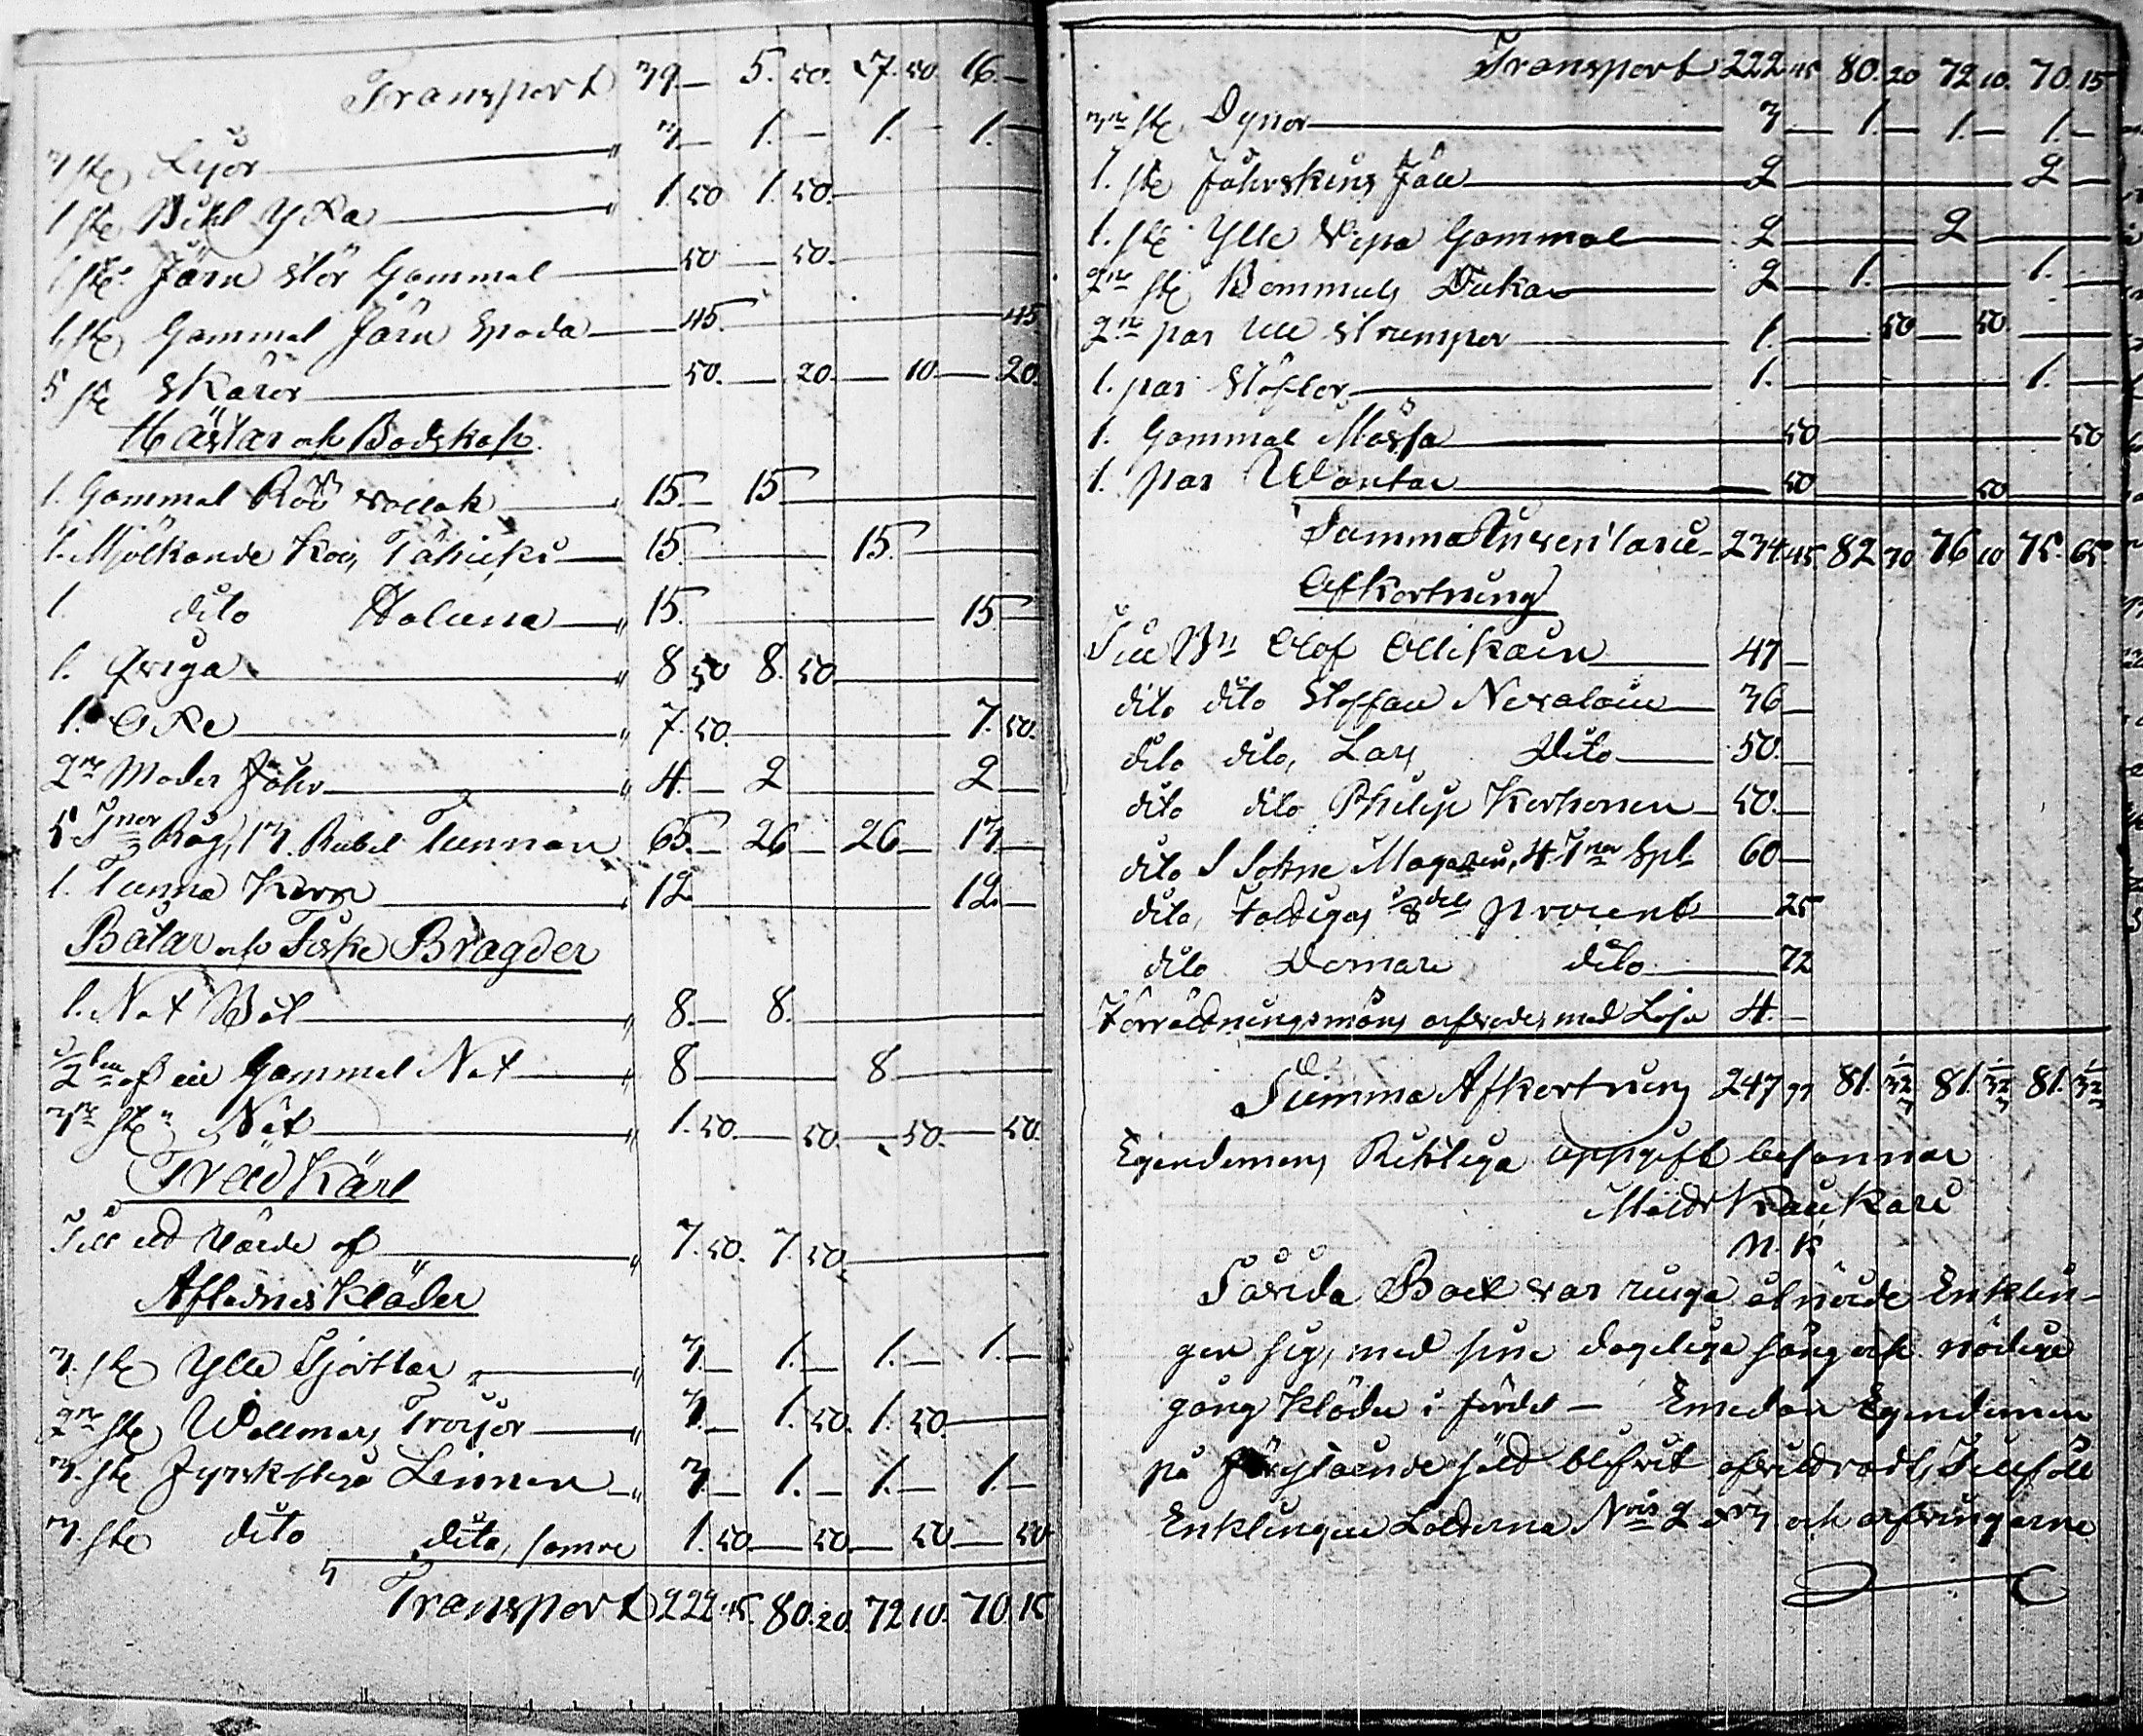 Transport 39.— 5. 50. 17. 50. 16.—
3 st. Lijor 3.— 1.— 1.— 1.—
1 st. Bihl Yxa 1. 50 1. 50.
1 st. Järn stör Gammal 50 50.
1 st. Gammal Järn Spada 45. 45
5 st. Skäror 50. 20. 10. 20.
Hästar och Bodskap.
1. Gammal Röd vallak 15.— 15.—
1. Mjölkande Ko, 15. 15.
1. dito Haluna 15. 15.
1. Qviga 8. 50 8. 50
1. Oxe 7. 50. 7. 50.
2ne Moder Fåhr 4.— 2 2
5 Tnor Råg, 13. Rubel Tunnan 65.— 26 26 13
1. Tunna Korn 12 12.—
Båtar och Fiske Bragder
1. Not Båt 8.— 8.
1/2 af en Gammal Not 8 8
3ne st. Nät 1. 50. 50. 50. 50.
Träd Kärl
Till ett värde af 7. 50. 7. 50.
Aflednes Kläder
3. st. Ylle Skjortlar 3.— 1.— 1.— 1.—
2ne st. Wallmans Tröjor 3.— 1. 50. 1. 50.
3. st. Linnen 3.— 1.— 1.— 1.—
3. st. dito dito, samre 1. 50. 50. 50 50
Transport 222. 45. 80. 20. 72 10. 70. 15
Transport 222. 45 80. 20 72 10. 70. 15
3ne st. Dynor 3 1.— 1.— 1.—
1. st. Fåhrskins Fäll 2 2
1. st. Ylle Vepa Gammal 2 2
2ne st. Bommuls Dukar 2 1. 1.
2ne par Ull Strumpor 1. 50 50
1. par Stöflor 1. 1.
1. Gammal Mössa 50 50
1. par Wantar 50 50
Summa Inventarie 234. 45 82 70 76 10 75. 65.
Afkortning
Till Bn Olof Ollikain 47
dito dito Staffan Nevalain 36
dito dito, Lars Dito 50.
dito dito Philip Korhonen 50.
dito S Sokne Magazin, 4 Tnor Spl 60
dito, Fattigas 1/8 dels procent 25
dito Domare dito 72
Förrättningsmans arfvode med Lösn 4.—
Summa Afkortning 247 97 81. 81. 81.
Egendomens Riktiga uppgift besannar
Matts Kaukari
Såvida Boet var ringa åtnöide Enklin-
gen sig, med sine dageliga säng och nödiga
gång Kläder i fördel — Emedan Egendomen
på sätt blifvit , Tillföll
Enklingen Lotterna Nris 2 och 3 och arfvingarne